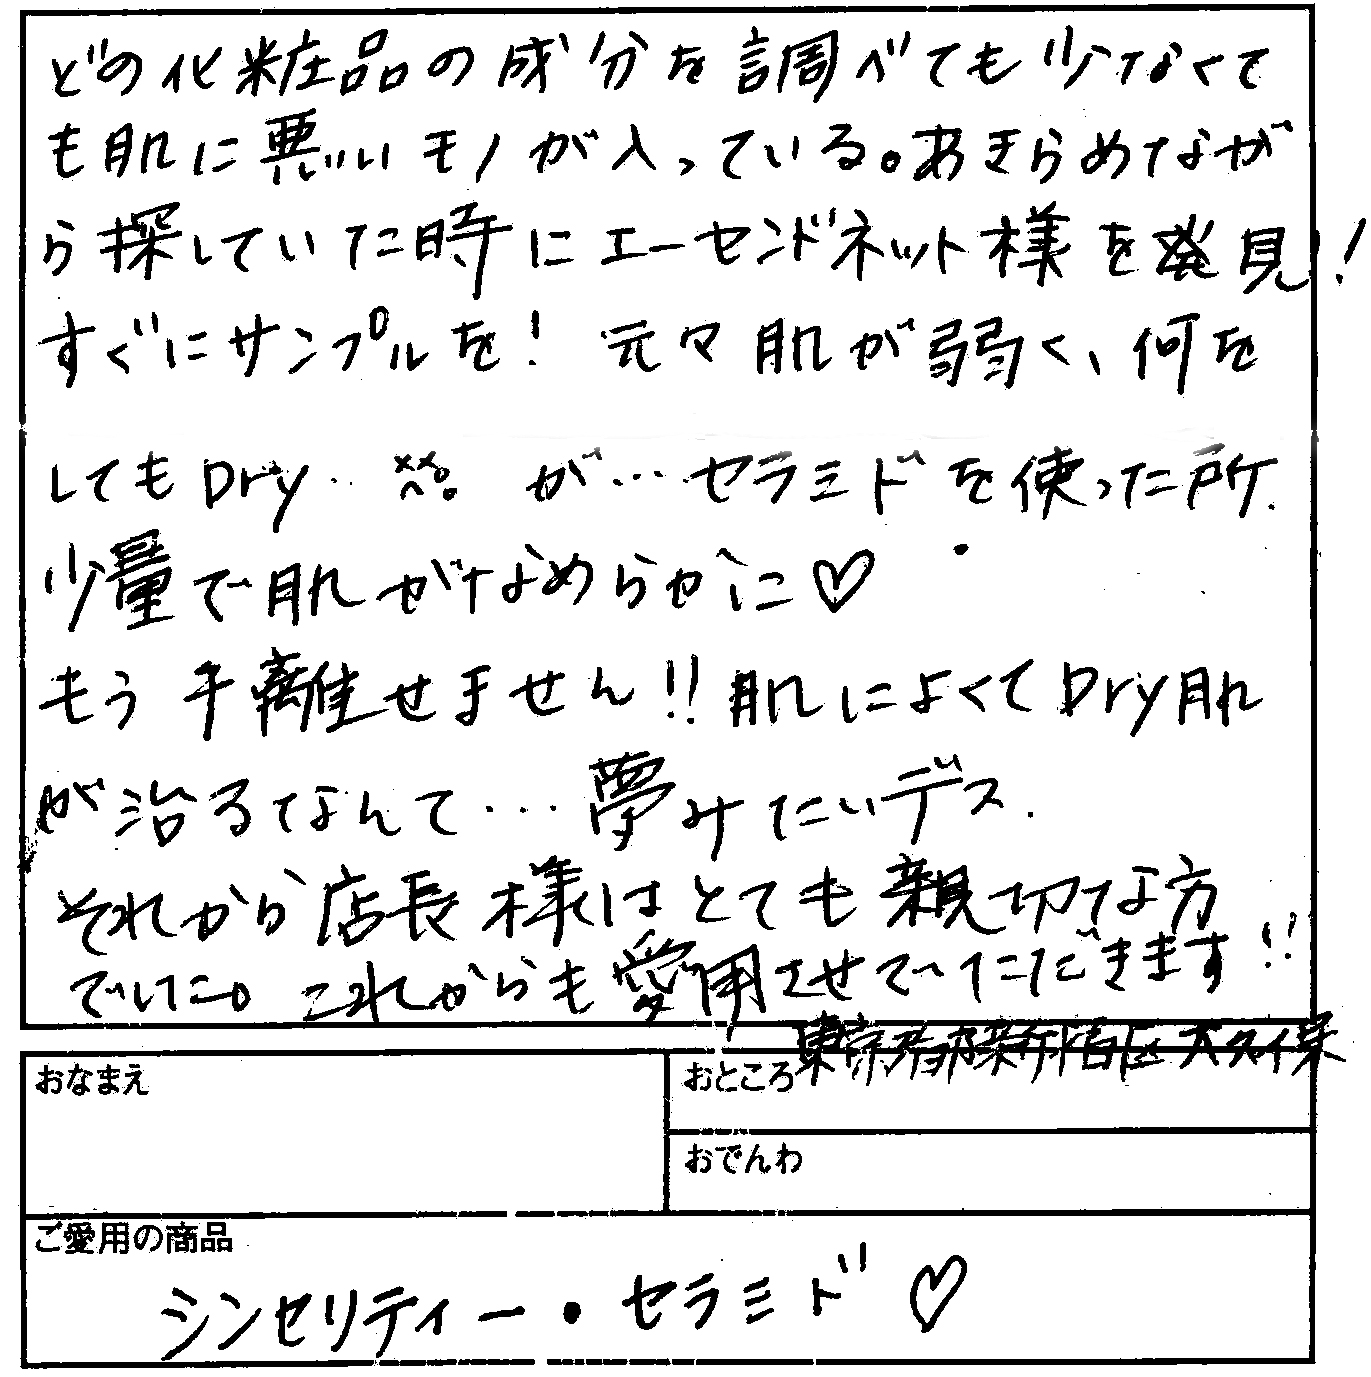 どの化粧品の成分を調べても少なくて
も肌に悪いモノが入っている。あきらめなが
ら探していた時にエーセンドネット様を発見!
すぐにサンプルを! 元々肌が弱く、何を
してもDry‥ が…セラミドを使った所.
少量で肌がなめらかに♡
もう手離せません!!肌によくてDry肌
が治るなんて…夢みたいデス.
それから店長様はとても親切な方
でした。これからも愛用させていただきます!!
東京都新宿区大久保
おなまえ
おところ
おでんわ
ご愛用の商品
シンセリティー・セラミド♡